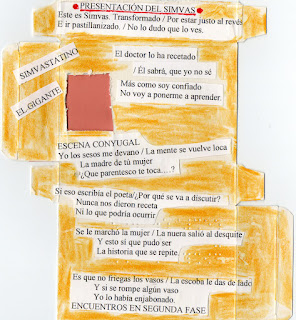 PRESENTACIÓN DEL SIMVAS
Este es Simvas. Transformado / Por estar justo al revés
E ir pastillanizado. / No lo dudo que lo ves.
SIMVASTATINO
EL GIGANTE
El doctor lo ha recetado
/ Él sabrá, que yo no sé
Más como soy confiado
No voy a ponerme a aprender.
ESCENA CONYUGAL
Yo los sesos me devano / La mente se vuelve loca
La madre de tú mujer
/ ¿Que parentesco te toca....?
Si eso escribía el poeta/¿Por qué se va a discutir?
Nunca nos dieron receta
Ni lo que podría ocurrir.
Se le marchó la mujer / La nuera salió al desquite
Y esto si que pudo ser
La historia que se repite.
Es que no friegas los vasos / La escoba le das de lado
Y si se rompe algún vaso
Yo lo había enjabonado.
ENCUENTROS EN SEGUNDA FASE